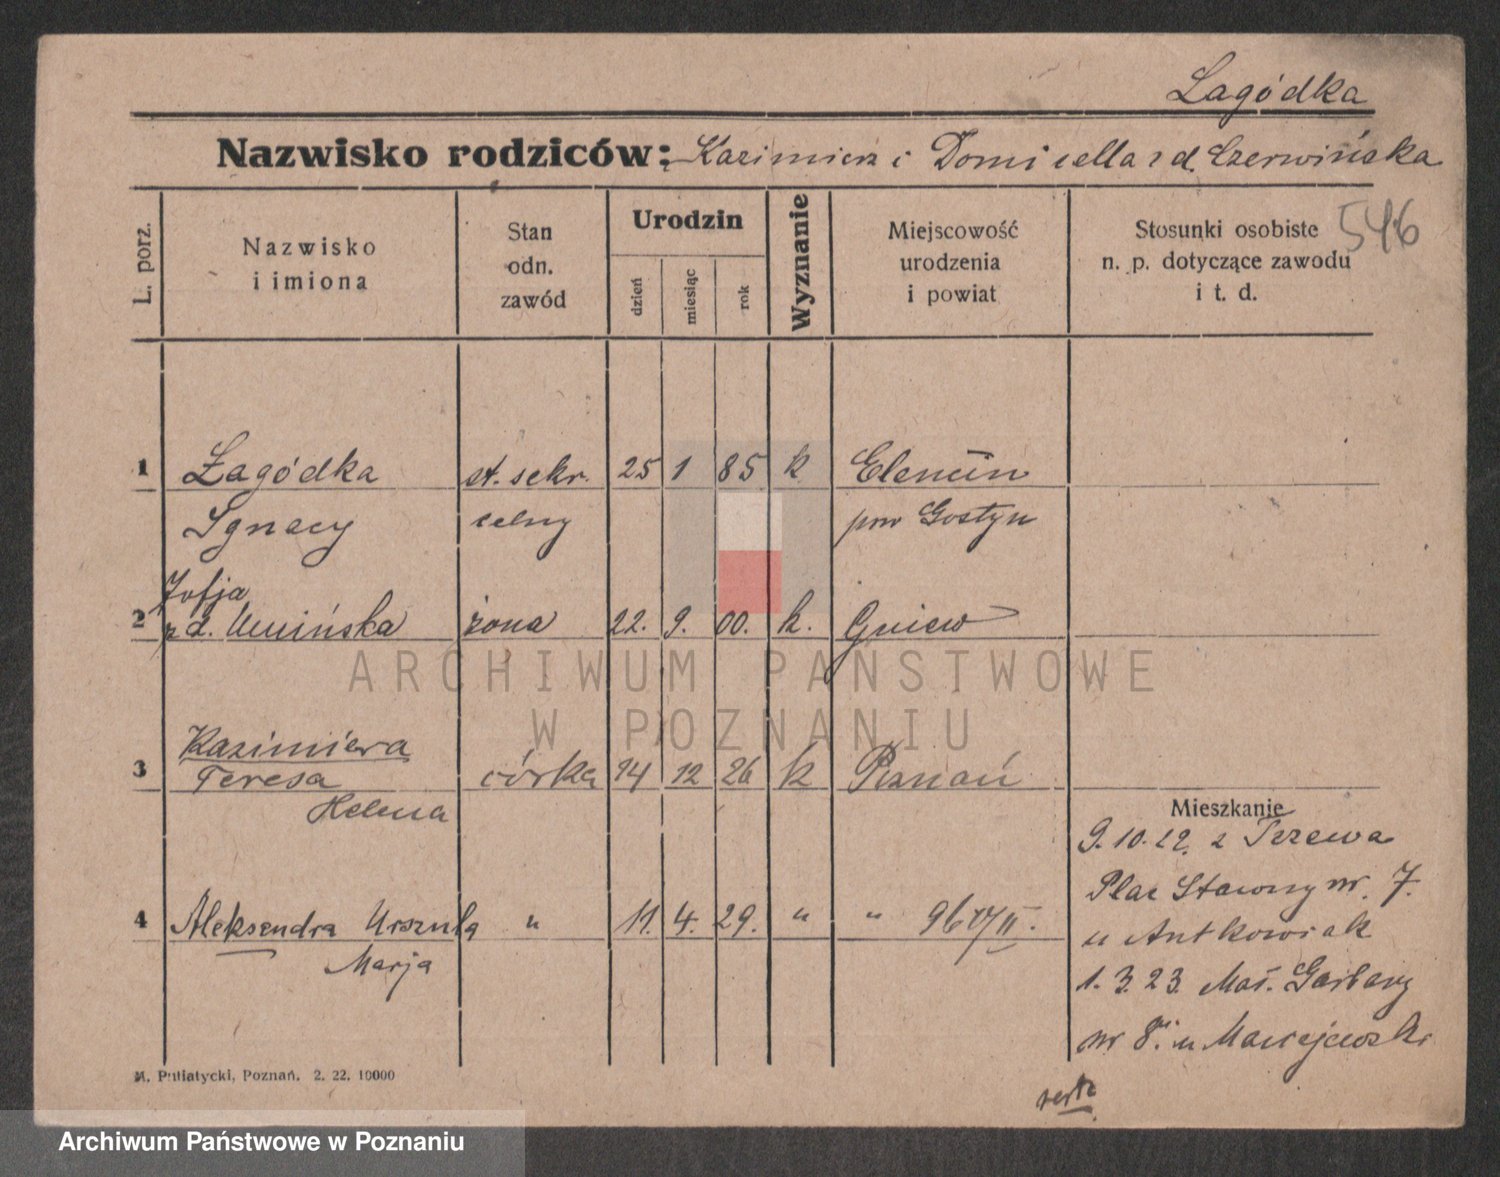 Łagódka
Nazwisko rodziców: Kazimierz i Domicella z d. Czerwińska
546
L. porz.
Nazwisko
i imiona
Stan
odn.
zawód
Urodzin
dzień
miesiąc
rok
Wyznanie
Miejscowość
urodzenia
i powiat
Stosunki osobiste
n. p. dotyczące zawodu
i t. d.
1 Łagódka st. sekr. 25 1 85 k
Ignacy celny pow Gostyn
Zofja
2 z d. Umińska żona 22. 9. 00. k. Gniew
Kazimiera
3 Teresa córka 14 12 26 k Poznań
Helena
4 Aleksandra Urszula " 11. 4. 29. " "
Marja
Mieszkanie
9.10.22. z Tczewa
Plac Stawny nr. 7.
u Antkowiak
1.3.23. Mał. Garbary
nr 8. u Maciejewski
M. Putiatycki, Poznań. 2. 22. 10000
ARCHIWUM PAŃSTWOWE
W POZNANIU
Archiwum Państwowe w Poznaniu